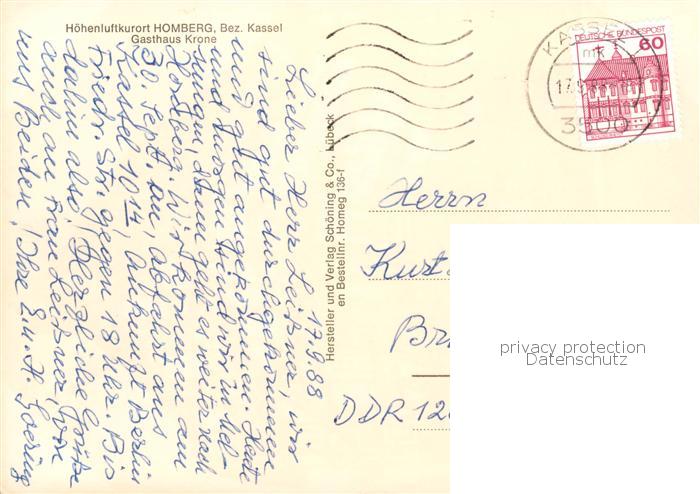 Höhenluftkurort HOMBERG, Bez. Kassel
Gasthaus Krone
17.9.88
Lieber Herr Leitner, wir
sind gut durchgekommen
und gut angekommen. Heute
und morgen sind wir in Mel-
sungen, dann geht es weiter nach
Homberg. Wir kommen am
30. Sept. an, abfahrt aus
Kassel 10 14, Ankunft Berlin
Friedr. Str. gegen 18 Uhr. Bis
dahin also! Herzliche Grüße
auch an Frau Leitner, von
uns Beiden! Ihre E. u. H. Goering
Hersteller und Verlag Schöning & Co., Lübeck
en Bestellnr. Homeg 136-f
KASSEL
mk
17.9.
3500
DEUTSCHE BUNDESPOST
60
Herrn
Kurt
DDR 12
privacy protection
Datenschutz